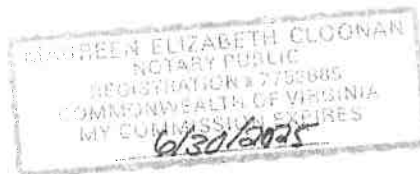 MAUREEN ELIZABETH CLOONAN
NOTARY PUBLIC
REGISTRATION #
COMMONWEALTH OF VIRGINIA
MY COMMISSION EXPIRES
6/30/2025